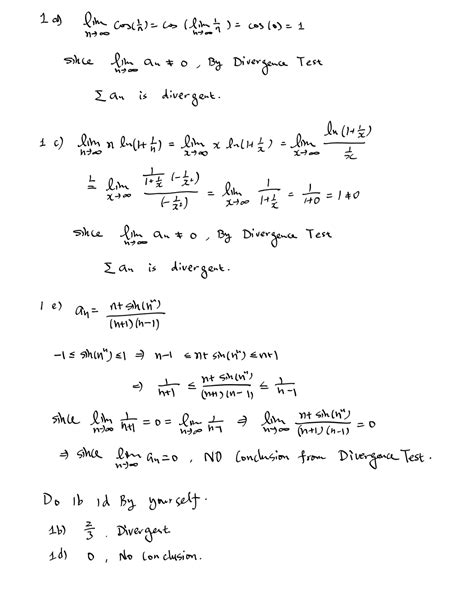 1 a) lim n→∞ cos(1/n) = cos (lim n→∞ 1/n) = cos (0) = 1
since lim n→∞ an ≠ 0, By Divergence Test
Σ an is divergent.
1 c) lim n→∞ n ln(1+1/n) = lim x→∞ x ln(1+1/x) = lim x→∞ ln(1+1/x) / (1/x)
L= lim x→∞ (1/(1+1/x) (-1/x²)) / (-1/x²) = lim x→∞ 1/(1+1/x) = 1/(1+0) = 1 ≠ 0
since lim n→∞ an ≠ 0, By Divergence Test
Σ an is divergent.
1 e) an = (n+ sin(nⁿ)) / ((n+1)(n-1))
-1 ≤ sin(nⁿ) ≤ 1 ⇒ n-1 ≤ n+ sin(nⁿ) ≤ n+1
⇒ 1/(n+1) ≤ (n+ sin(nⁿ)) / ((n+1)(n-1)) ≤ 1/(n-1)
since lim n→∞ 1/(n+1) = 0 = lim n→∞ 1/(n-1) ⇒ lim n→∞ (n+ sin(nⁿ)) / ((n+1)(n-1)) = 0
⇒ since lim n→∞ an = 0, NO Conclusion from Divergence Test.
Do 1b 1d By yourself.
1b) 2/3, Divergent
1d) 0, No Conclusion.